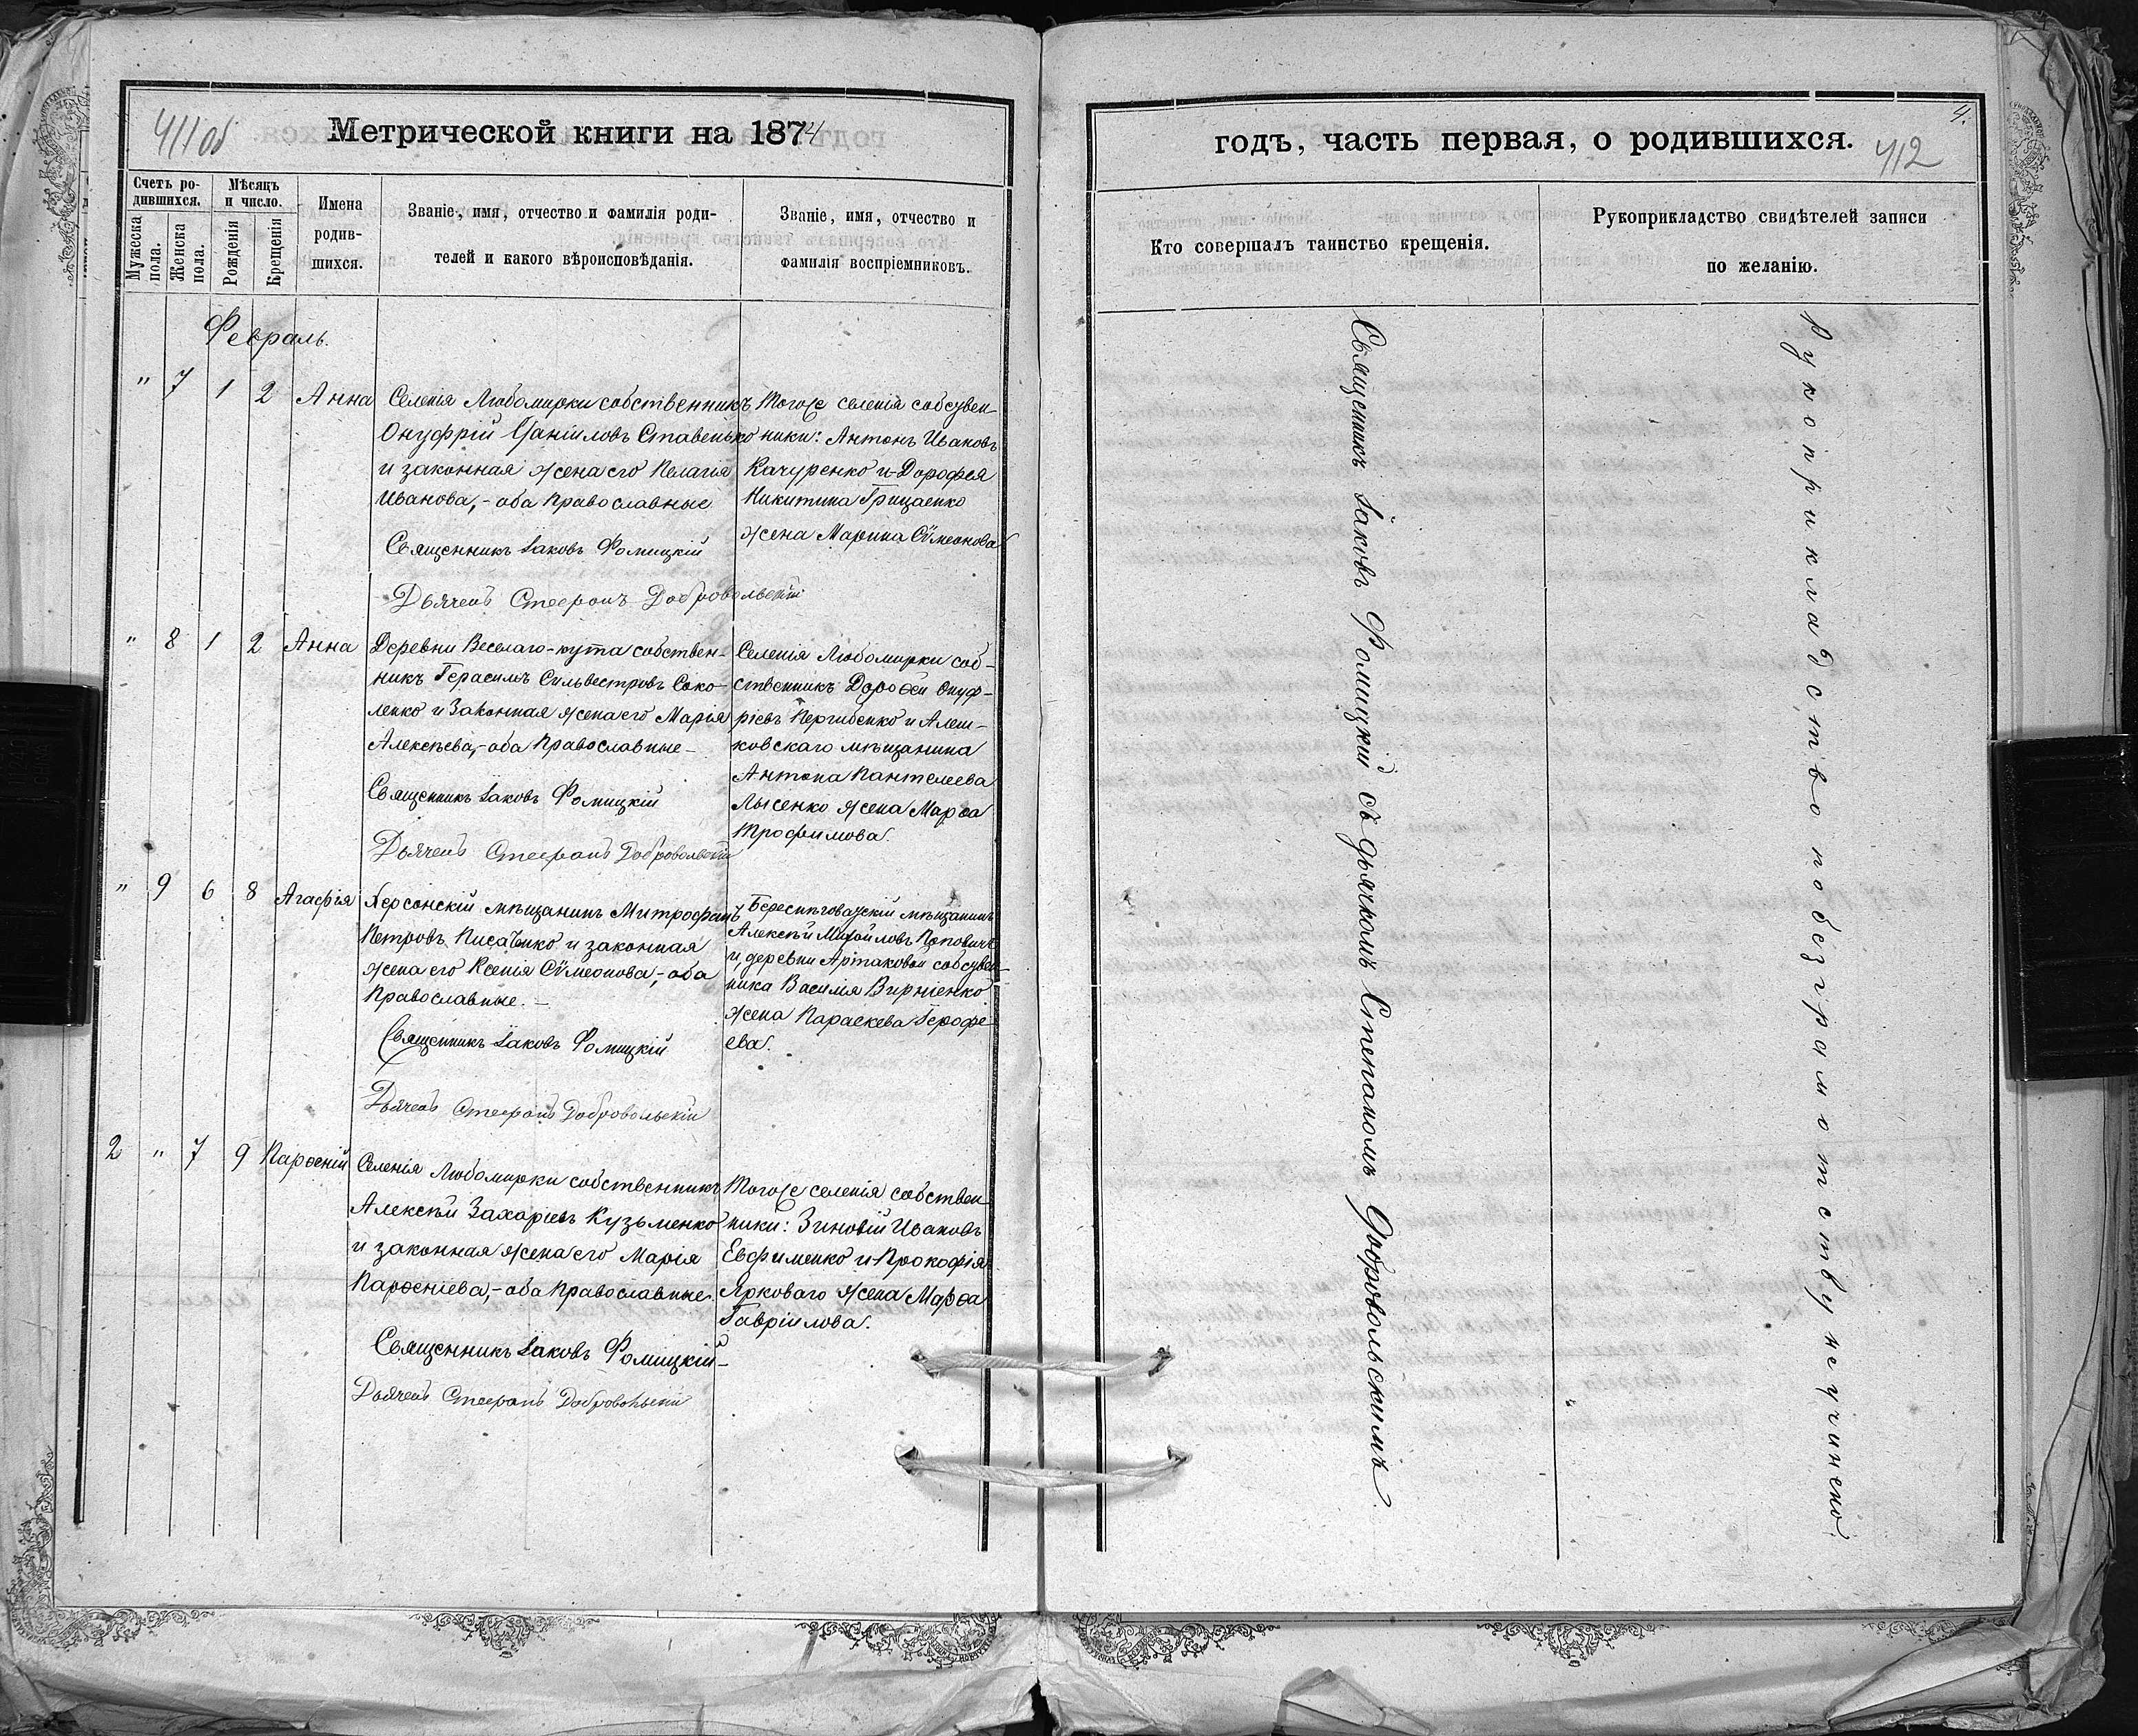 411об
Метрической книги на 1874
Счетъ ро-
дившихся.
Мужеска
пола.
Женска
пола.
Мѣсяцъ
и число.
Рожденія
Крещенія
Имена
родив-
шихся.
Званіе, имя, отчество и фамилія роди-
телей и какого вѣроисповѣданія.
Званіе, имя, отчество и
фамилія воспріемниковъ.
Февраль.
" 7 1 2 Анна
Селенія Любомирки собственникъ
Онуфрій Даніиловъ Ставенько
и законная жена его Пелагія
Иванова,- оба православные
Священникъ Іаковъ Фомицкій
Дьячекъ Стефанъ Добровольскій
Тогоже селенія собствен-
ники: Антонъ Ивановъ
Качуренко и Дорофея
Никитина Грицаенко
жена Марина Сѵмеонова
" 8 1 2 Анна
Деревни Веселаго-кута собствен-
никъ Герасимъ Сильвестровъ Соко-
ленко и законная жена его Марія
Алексѣева,- оба православные-
Священникъ Іаковъ Фомицкій
Дьячекъ Стефанъ Добровольскій
Селенія Любомирки соб-
ственникъ Дороѳей Онуф-
ріевъ Пергибенко и Алеш-
ковскаго мѣщанина
Антона Пантелеева
Лысенко жена Марѳа
Трофимова.
" 9 6 8 Агафія
Херсонскій мѣщанинъ Митрофанъ
Петровъ Писаченко и законная
жена его Ксенія Сѵмеонова,- оба
православные.-
Священникъ Іаковъ Фомицкій
Дьячекъ Стефанъ Добровольскій
мѣщанинъ
Алексѣй Михайловъ Поповичъ
и деревни Артаковой собствен-
ника Василія Вирніенко
жена Параскева Іерофе-
ева.
2 " 7 9 Парѳеній
Селенія Любомирки собственникъ
Алексѣй Захаріевъ Кузьменко
и законная жена его Марія
Парѳеніева,- оба православные.
Священникъ Іаковъ Фомицкій-
Дьячекъ Стефанъ Добровольскій
Тогоже селенія собствен-
ники: Зиновій Ивановъ
Евфименко и Прокофія
Яркового жена Марѳа
Гавріилова.
4.
годъ, часть первая, о родившихся.
412
Кто совершалъ таинство крещенія.
Рукоприкладство свидѣтелей записи
по желанію.
Священникъ Іаковъ Фомицкій съ дьячкомъ Стефаномъ Добровольскимъ.
Рукоприкладство по безграмотству неучинено.